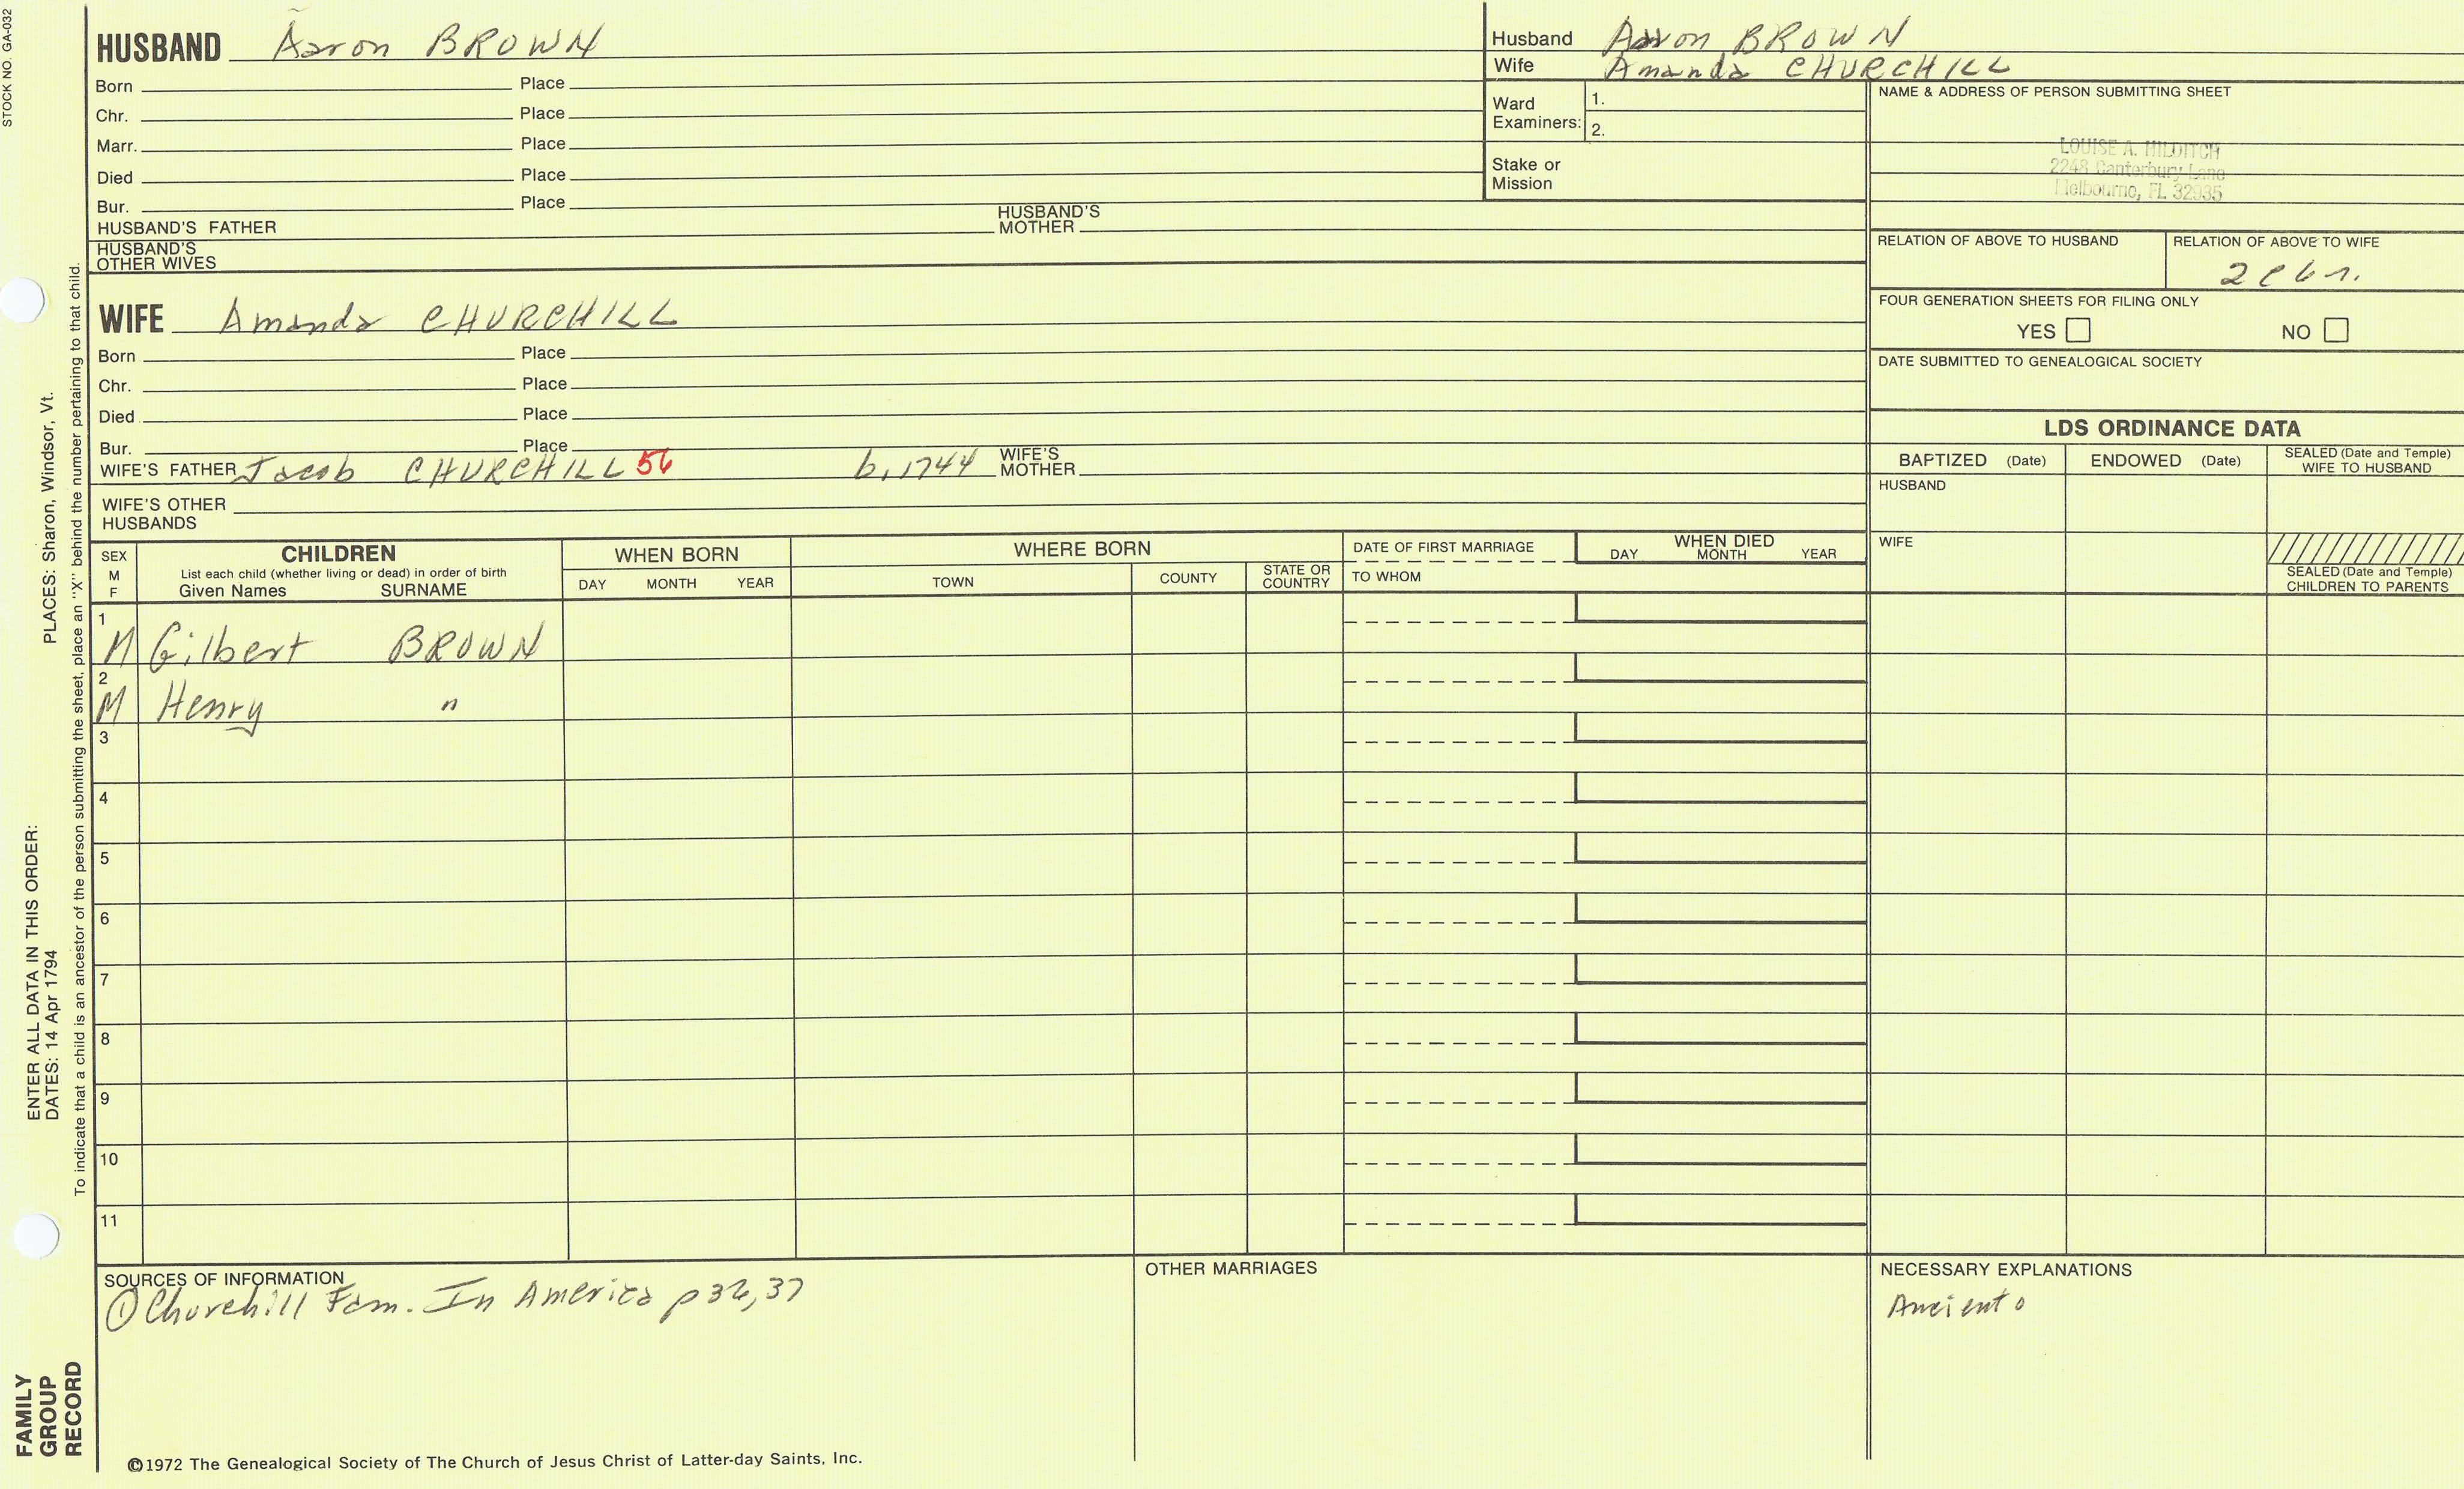 STOCK NO. GA-032
HUSBAND Aaron BROWN
Born Place
Chr. Place
Marr. Place
Died Place
Bur. Place
HUSBAND'S FATHER HUSBAND'S MOTHER
HUSBAND'S OTHER WIVES
WIFE Amanda CHURCHILL
Born Place
Chr. Place
Died Place
Bur. Place
WIFE'S FATHER Jacob CHURCHILL 56 b. 1744 WIFE'S MOTHER
WIFE'S OTHER HUSBANDS
Husband Aaron BROWN
Wife Amanda CHURCHILL
Ward Examiners: 1.
2.
Stake or Mission
NAME & ADDRESS OF PERSON SUBMITTING SHEET
LOUISE A. HILDITCH
2248 Canterbury Lane
Melbourne, FL 32935
RELATION OF ABOVE TO HUSBAND RELATION OF ABOVE TO WIFE
FOUR GENERATION SHEETS FOR FILING ONLY
YES NO
DATE SUBMITTED TO GENEALOGICAL SOCIETY
LDS ORDINANCE DATA
BAPTIZED (Date) ENDOWED (Date) SEALED (Date and Temple) WIFE TO HUSBAND
HUSBAND
WIFE
SEALED (Date and Temple) CHILDREN TO PARENTS
SEX M F CHILDREN WHEN BORN WHERE BORN DATE OF FIRST MARRIAGE WHEN DIED
List each child (whether living or dead) in order of birth
Given Names SURNAME DAY MONTH YEAR TOWN COUNTY STATE OR COUNTRY TO WHOM DAY MONTH YEAR
1 M Gilbert BROWN
2 M Henry "
3
4
5
6
7
8
9
10
11
SOURCES OF INFORMATION
① Churchill Fam. In America p 36, 37
OTHER MARRIAGES
NECESSARY EXPLANATIONS
©1972 The Genealogical Society of The Church of Jesus Christ of Latter-day Saints, Inc.
FAMILY GROUP RECORD
ENTER ALL DATA IN THIS ORDER:
DATES: 14 Apr 1794 PLACES: Sharon, Windsor, Vt.
To indicate that a child is an ancestor of the person submitting the sheet, place an "X" behind the number pertaining to that child.